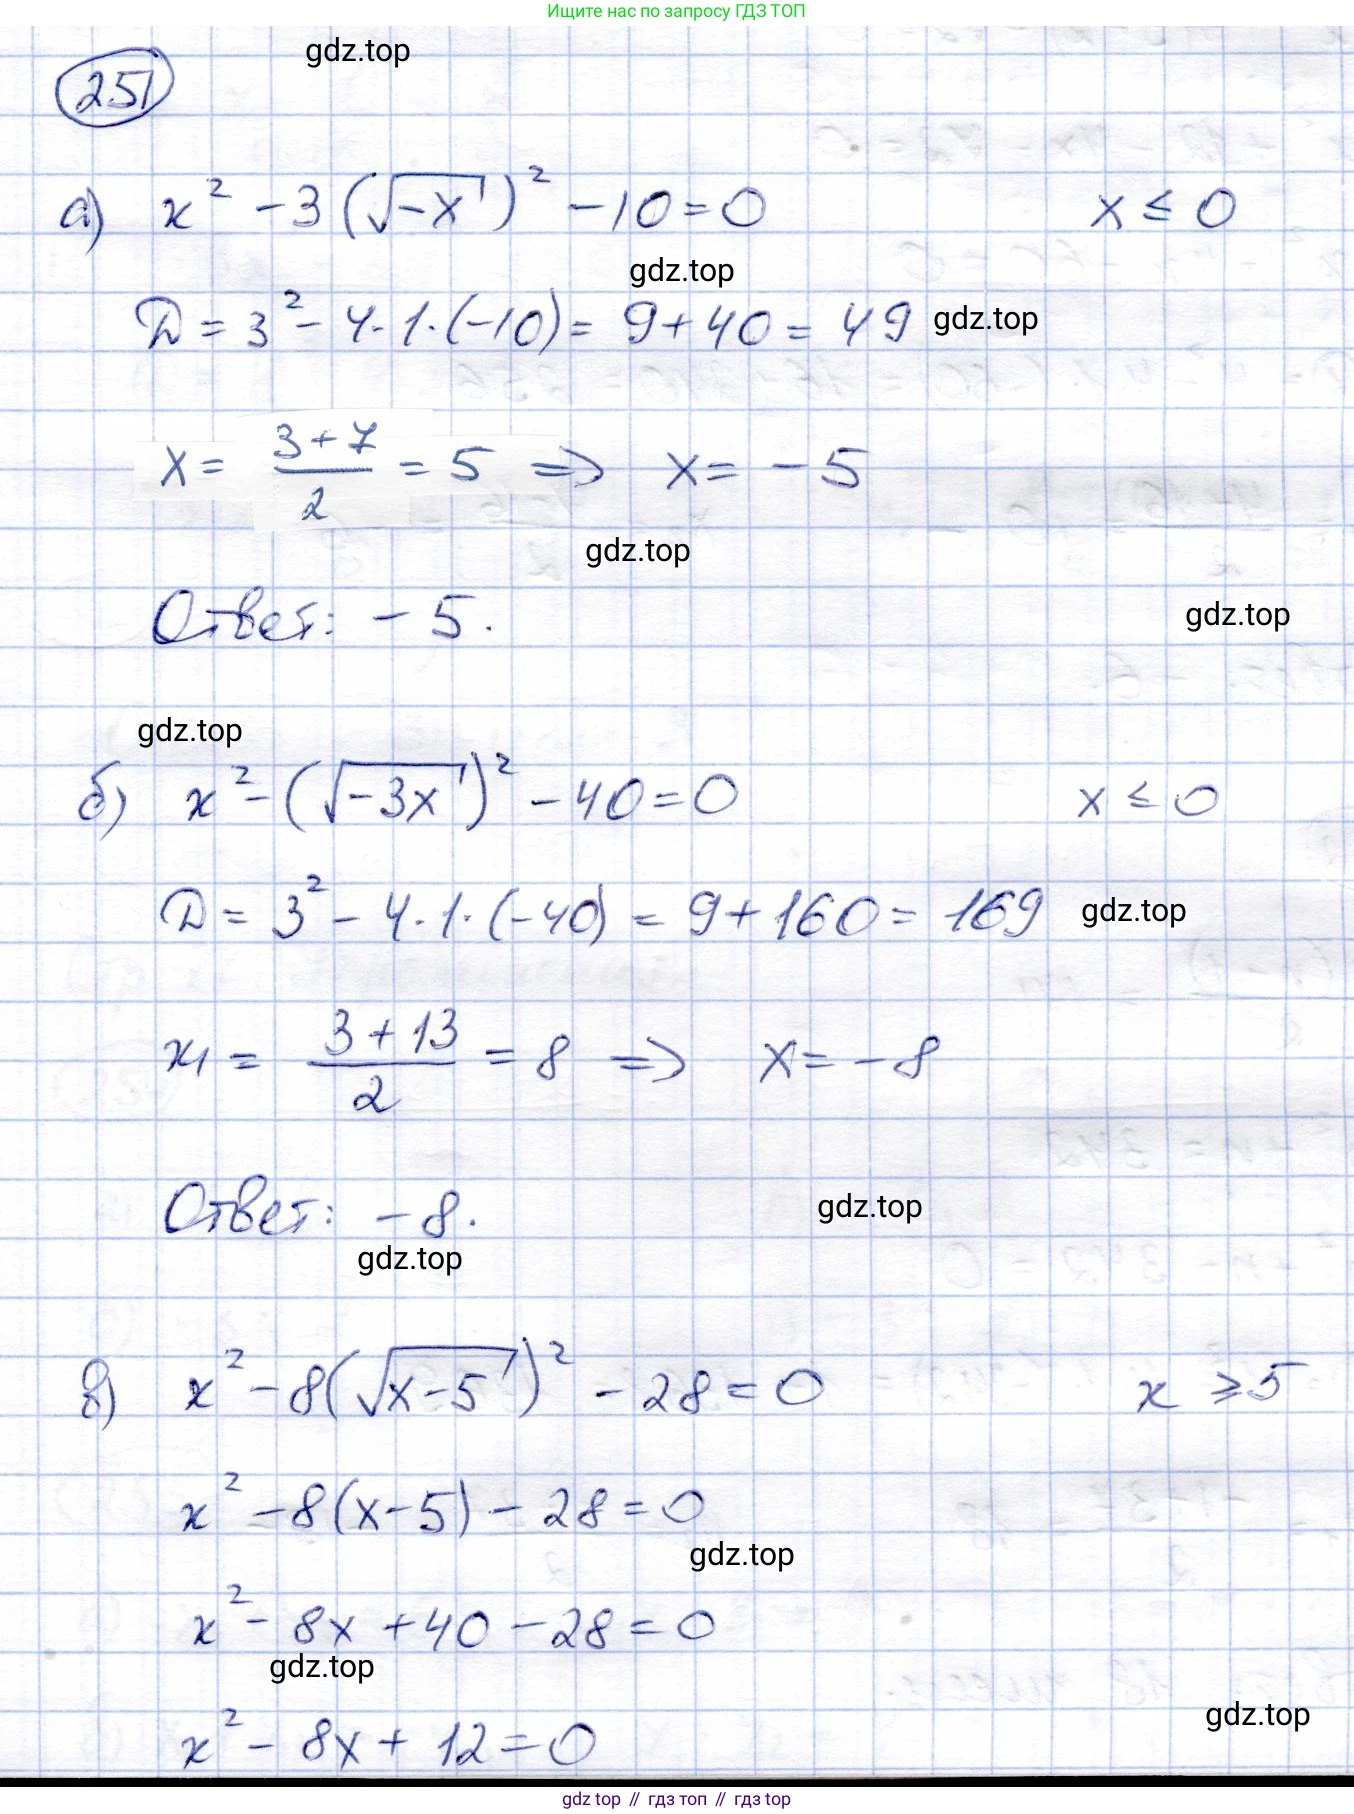 Ищите нас по запросу ГДЗ ТОП
gdz.top
251
а) x² - 3(√-x)² - 10 = 0 x ≤ 0
gdz.top
D = 3² - 4·1·(-10) = 9 + 40 = 49 gdz.top
x = (3+7)/2 = 5 => x = -5
gdz.top
Ответ: -5.
gdz.top
gdz.top
б) x² - (√-3x)² - 40 = 0 x ≤ 0
D = 3² - 4·1·(-40) = 9 + 160 = 169 gdz.top
x₁ = (3+13)/2 = 8 => x = -8
Ответ: -8.
gdz.top
gdz.top
в) x² - 8(√x-5)² - 28 = 0 x ≥ 5
x² - 8(x-5) - 28 = 0
gdz.top
x² - 8x + 40 - 28 = 0
gdz.top
gdz.top
x² - 8x + 12 = 0
gdz top // гдз топ // gdz top